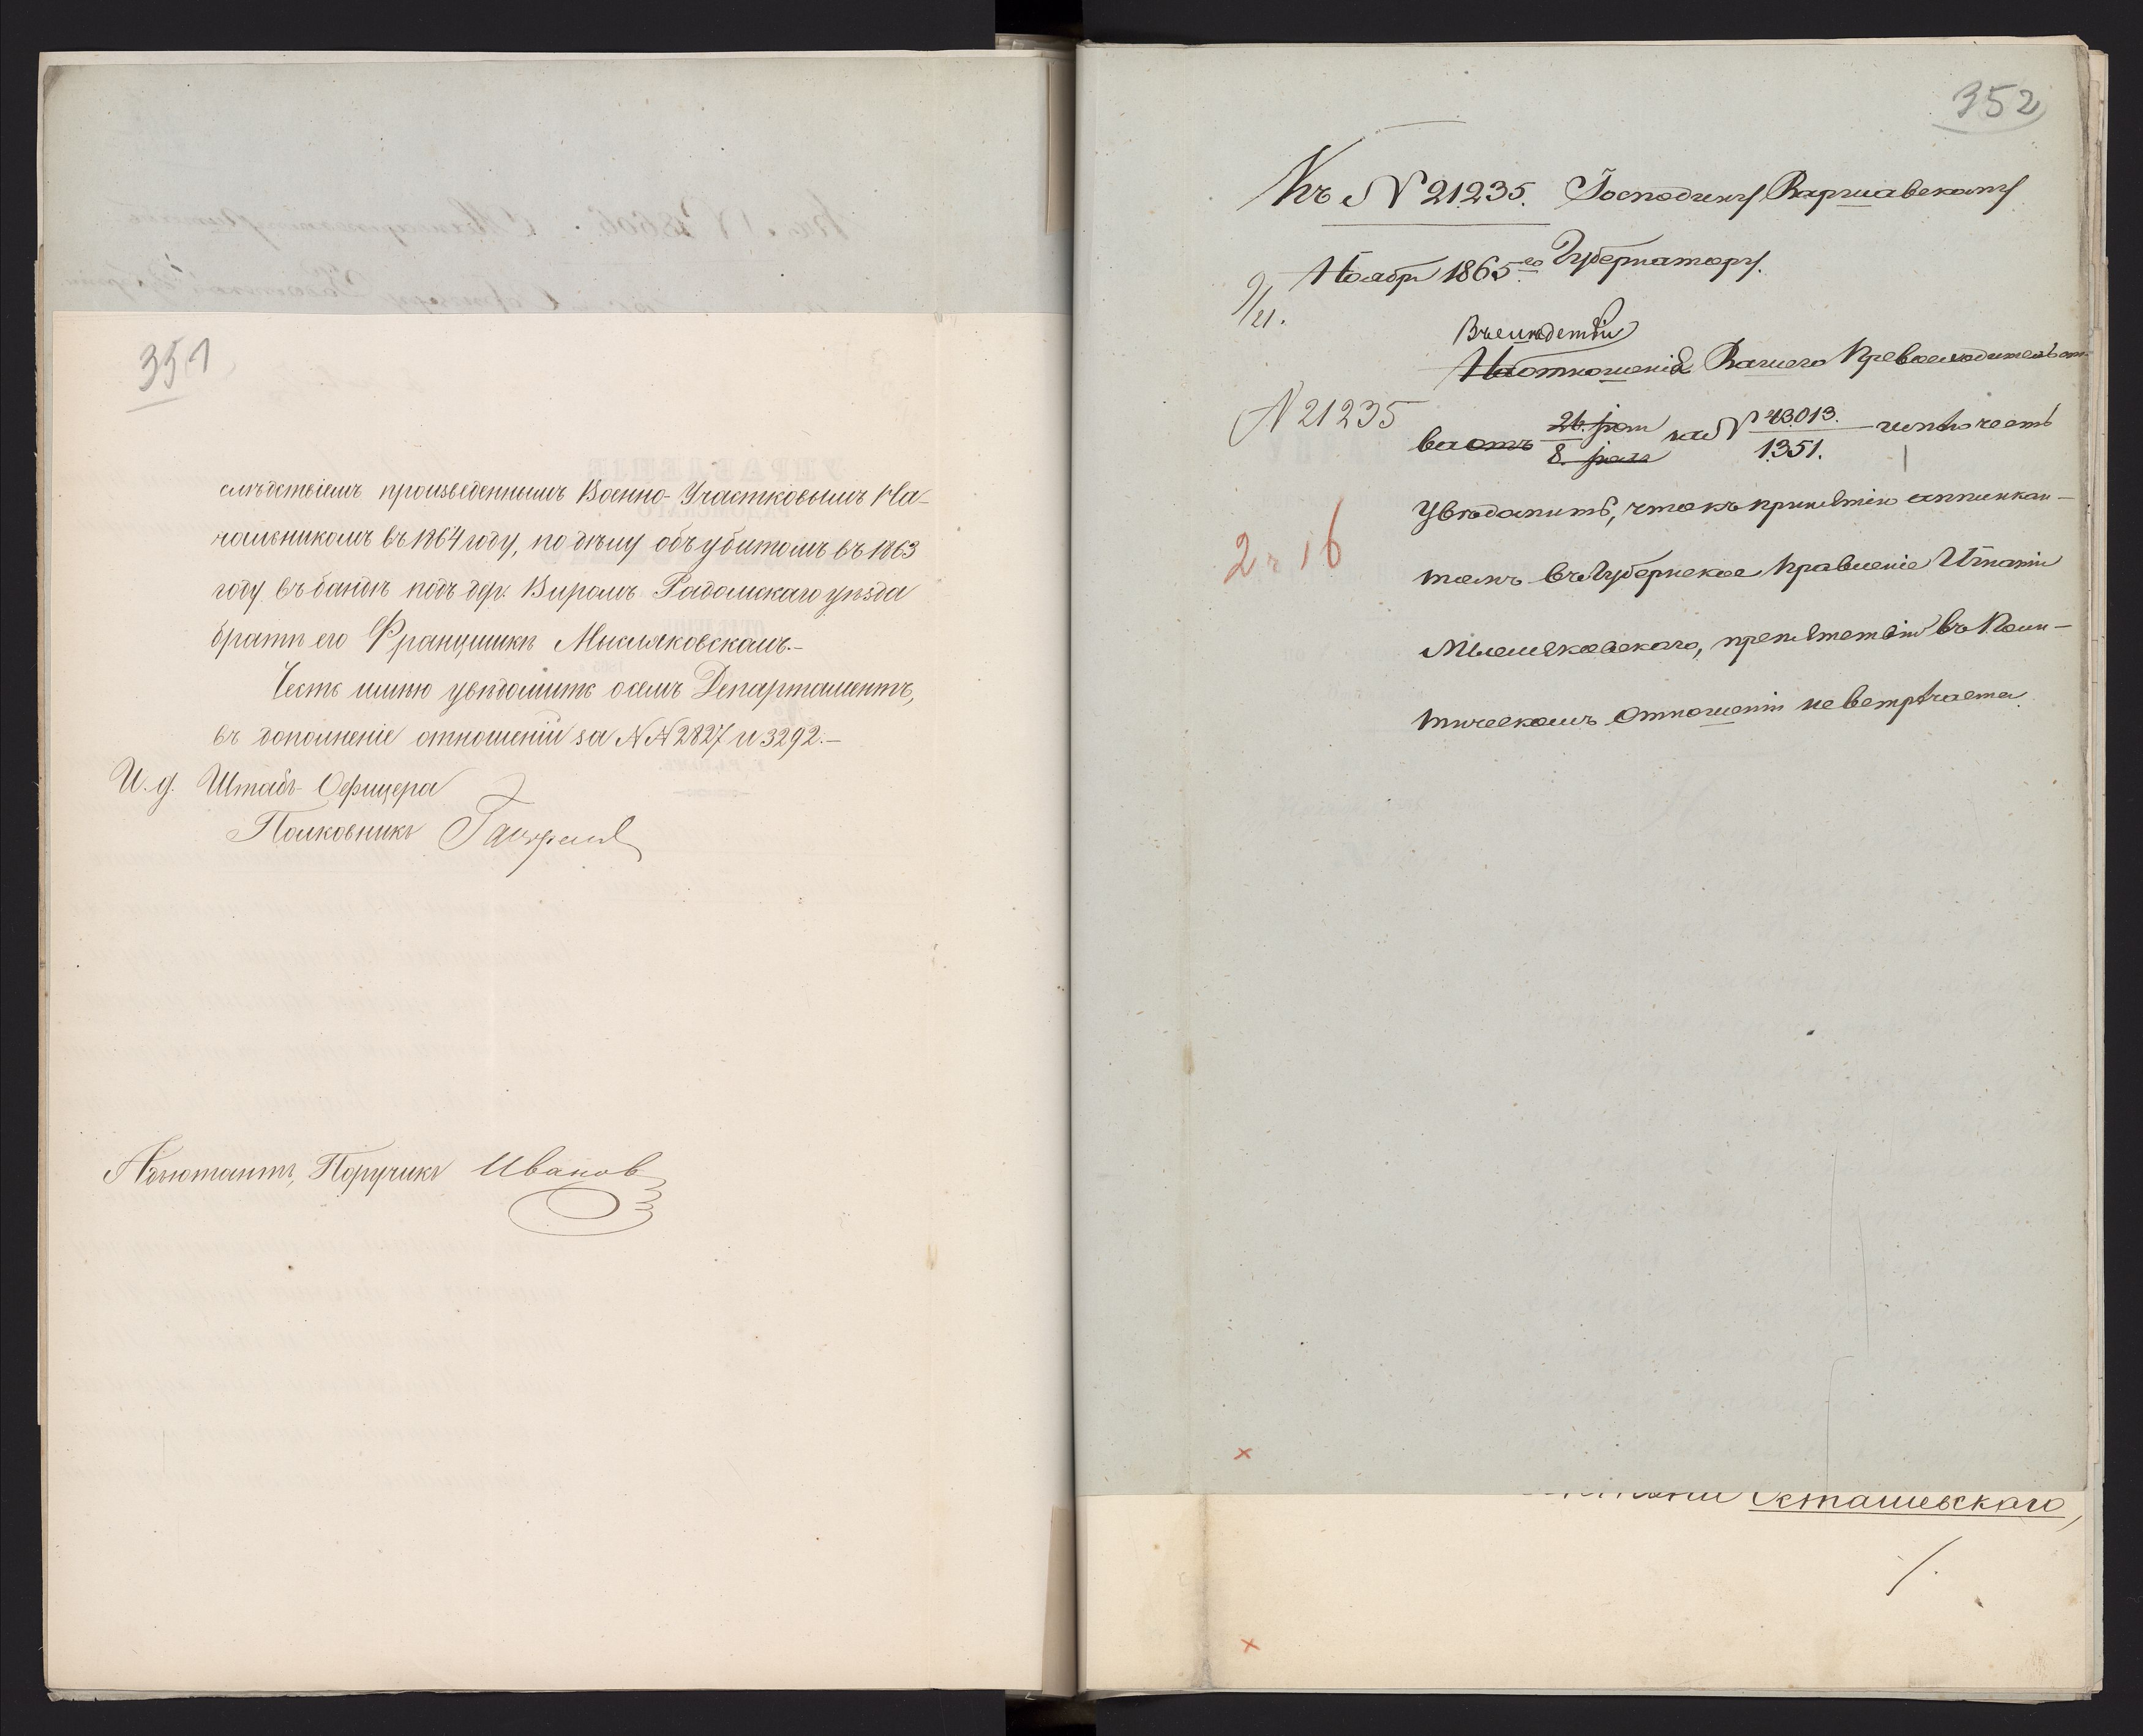 351
слѣдствіемъ произведеннымъ Военно-Участковымъ На-
чальникомъ въ 1864 году, по дѣлу объ убитомъ въ 1863
году въ бандѣ подъ дер. Виромъ Радомскаго уѣзда
братѣ его Францишкѣ Мысляковскомъ.-
Честь имѣю увѣдомить о семъ Департаментъ,
въ дополненіе отношеній за №№ 2827 и 3292.-
И. д. Штабъ-Офицера
Полковникъ
Адъютантъ, Поручикъ Иванов
352
Къ № 21235. Господину Варшавскому
9/21. Ноября 1865 го Губернатору.
Вслѣдствіи
На отношенія Вашего Превосходительст-
№ 21235
ва отъ 26 8 за № 43013/1351. имѣю честь
увѣдомить, что къ принятію аппликан-
2 г 16
томъ въ Губернское Правленіе Игнатія
Мысляковскаго, препятствій въ Поли-
тическомъ отношеніи не встрѣчается.
Осташевскаго,